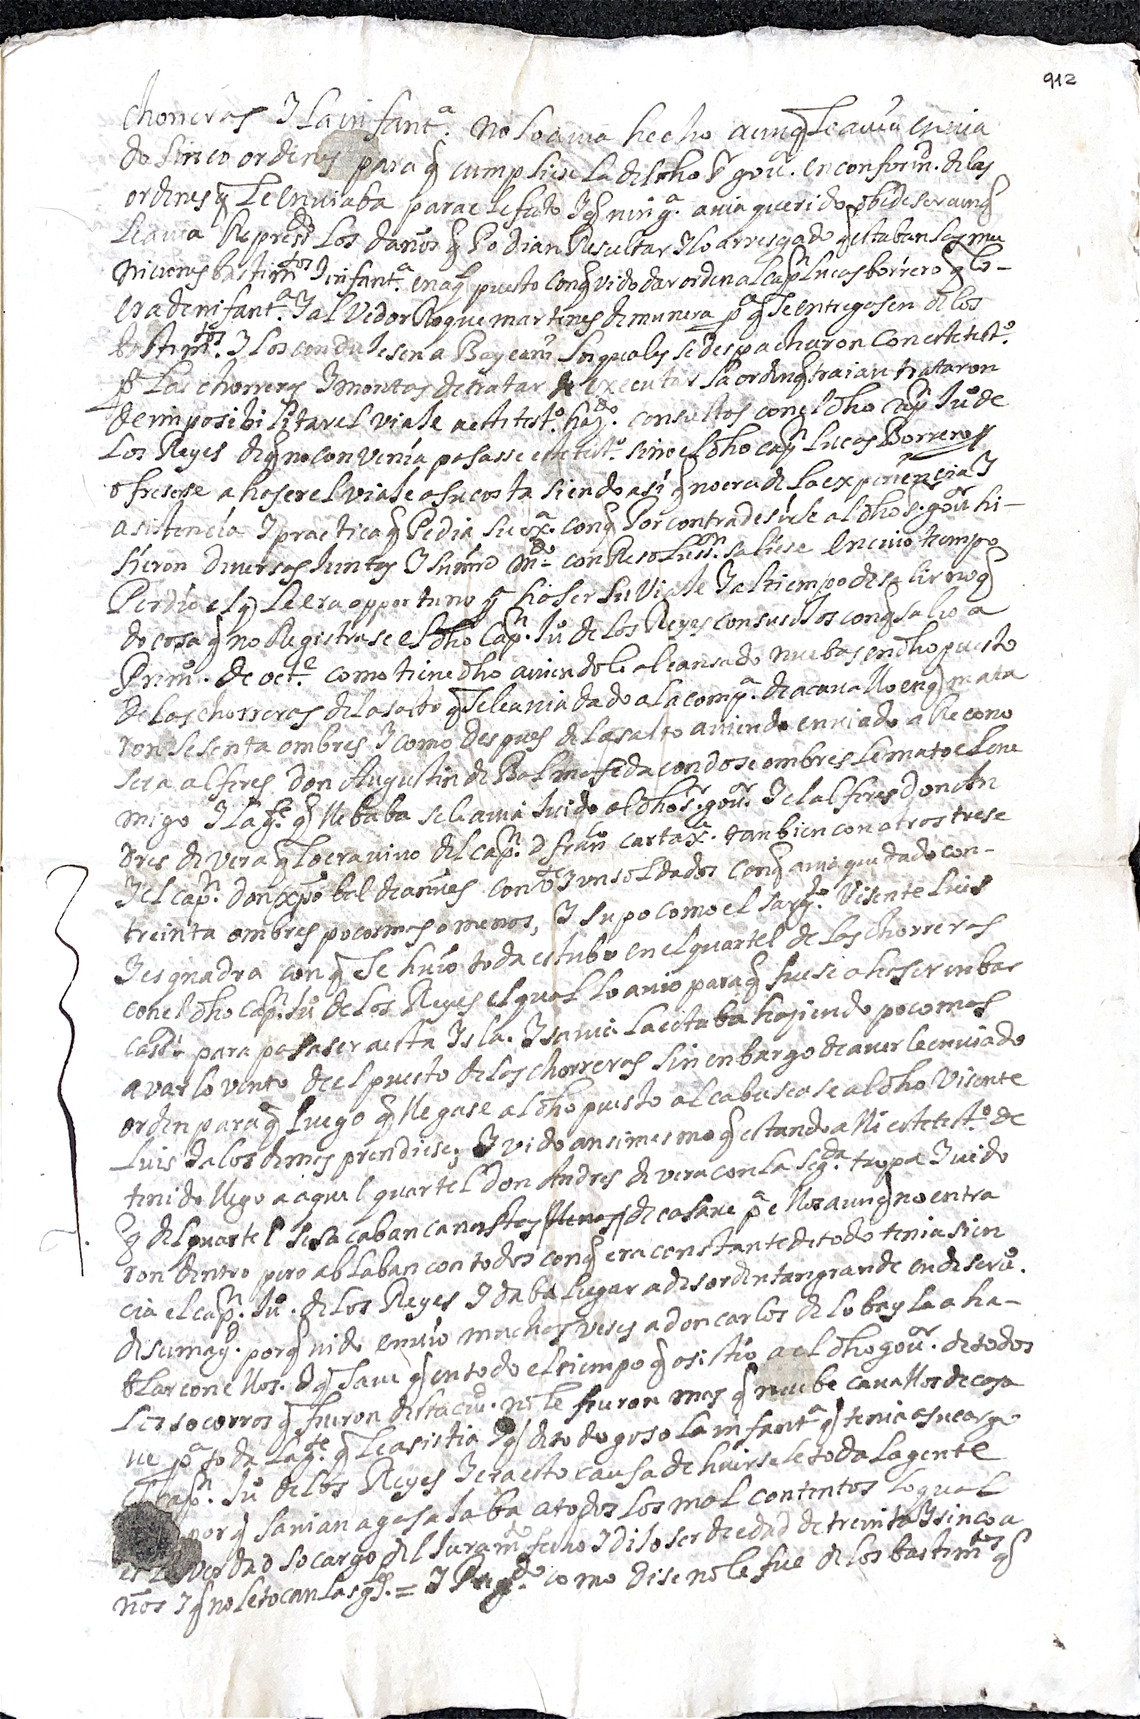 912
chorreras I la infant.ª no lo avia hecho aunq̃ le avia envia
do sinco ordenes para q̃ cumpliese la del dho Sr gour. en conform.d de las
ordenes q̃ le enviaba para el efecto I q̃ ning.ª avia querido obedeser aunq̃
le avia Repres.do los daños q̃ Podian Resultar I lo arresgado q̃ estaban las mu
niciones bastim.tos I infant.ª en aq̃l puesto conq̃ vido dar orden al cap.n Lucas borrero q̃ lo
era de infant.ª I al Vedor Roque martines de munera p.ª q̃ se entregasen de los
bastim.tos I los condujesen a los quales se despacharon con este test.º
p.ª las chorreras I montos de tratar de executar la orden q̃ traian trataron
de imposibilitar el viaje a este test.º consultos con el dho cap.n Ju.º de
Los Reyes de q̃ no convenia pasasse este test.º sino el dho cap.n Lucas Borrero
ofresese a haser el viaje a su costa siendo asi q̃ no era de la experiencia I
asistencia I practica q̃ Pedia su ex.ª conq̃ Por contradesirse al dho Sr. gour hi-
sieron diversas Juntas I con Resoluss.n saliese En cuio tiempo
Perdio el q̃ le era opportuno p.ª haser su Viaje I al tiempo de salir
do cosa q̃ no Registrase el dho Cap.n Ju.º de los Reyes con sus conq̃ salio a
Prim.º de oct.e como tiene dho aviendole alcansado nuebas en dho puesto
de las chorreras del asalto q̃ se le avia dado a la comp.ª de acavallo en q̃ mata
ron sesenta ombres I como despues del asalto aviendo enviado a Recono
ser a alferes Don Augustin de Balmaseda con dose ombres le mato el ene
migo I la g.te q̃ llebaba se le avia huido al dho Sr. gour. I el alferes Don An
dres de vera q̃ lo era vivo del cap.n D fran.co cartax.ª tanbien con otros trese
I el cap.n Don xpobal de annes con I un soldados conq̃ avia quedado con-
treinta ombres poco mas o menos, I supo como el sarg.to Visente Luis
I esquadra conq̃ se huio toda estubo en el quartel de las chorreras
con el dho cap.n Ju.º de los Reyes el qual lo avio para q̃ fuese a haser enbar
cass.n para pasarse a esta Isla. I savia la estaba hasiendo poco mas
a varlovento de el puesto de las chorreras sin enbargo de averle enviado
orden para q̃ luego q̃ llegase al dho puesto alcabusease al dho Visente
Luis I a los demas prendiese, I vido ansimesmo q̃ estando alli este test.º de
tenido llego a aquel quartel Don Andres de vera con la seg.da tropa I vido
q̃ del quartel se sacaban canastos llenos de casave p.ª ellos aunq̃ no entra
ron dentro pero ablaban con todos conq̃ era constante de todo tenia sien
cia el cap.n Ju.º de los Reyes I daba lugar a desorden tan grande en deserv.º
de su mag.d porq̃ vido envio muchas veses a don carlos de lobayla a ha-
blar con ellos. I q̃ save q̃ en todo el tiempo q̃ asistio a el dho gour. de todos
los socorros q̃ fueron desta ciu.d no le fueron mas q̃ nuebe cavallos de casa
ve p.ª toda la g.te q̃ le asistia I q̃ de todo goso la infant.ª q̃ tenia a su cargo
el cap.n Ju.º de los Reyes I era esto causa de huirsele toda la gente
porq̃ savian agasajaba a todos los mal contentos lo qual
es la verdad so cargo del Juram.to fecho I dijo ser de edad de treinta I sinco a
ños I q̃ no le tocan las g.les = I Preg.do como dise no le fue de los bastim.tos q̃